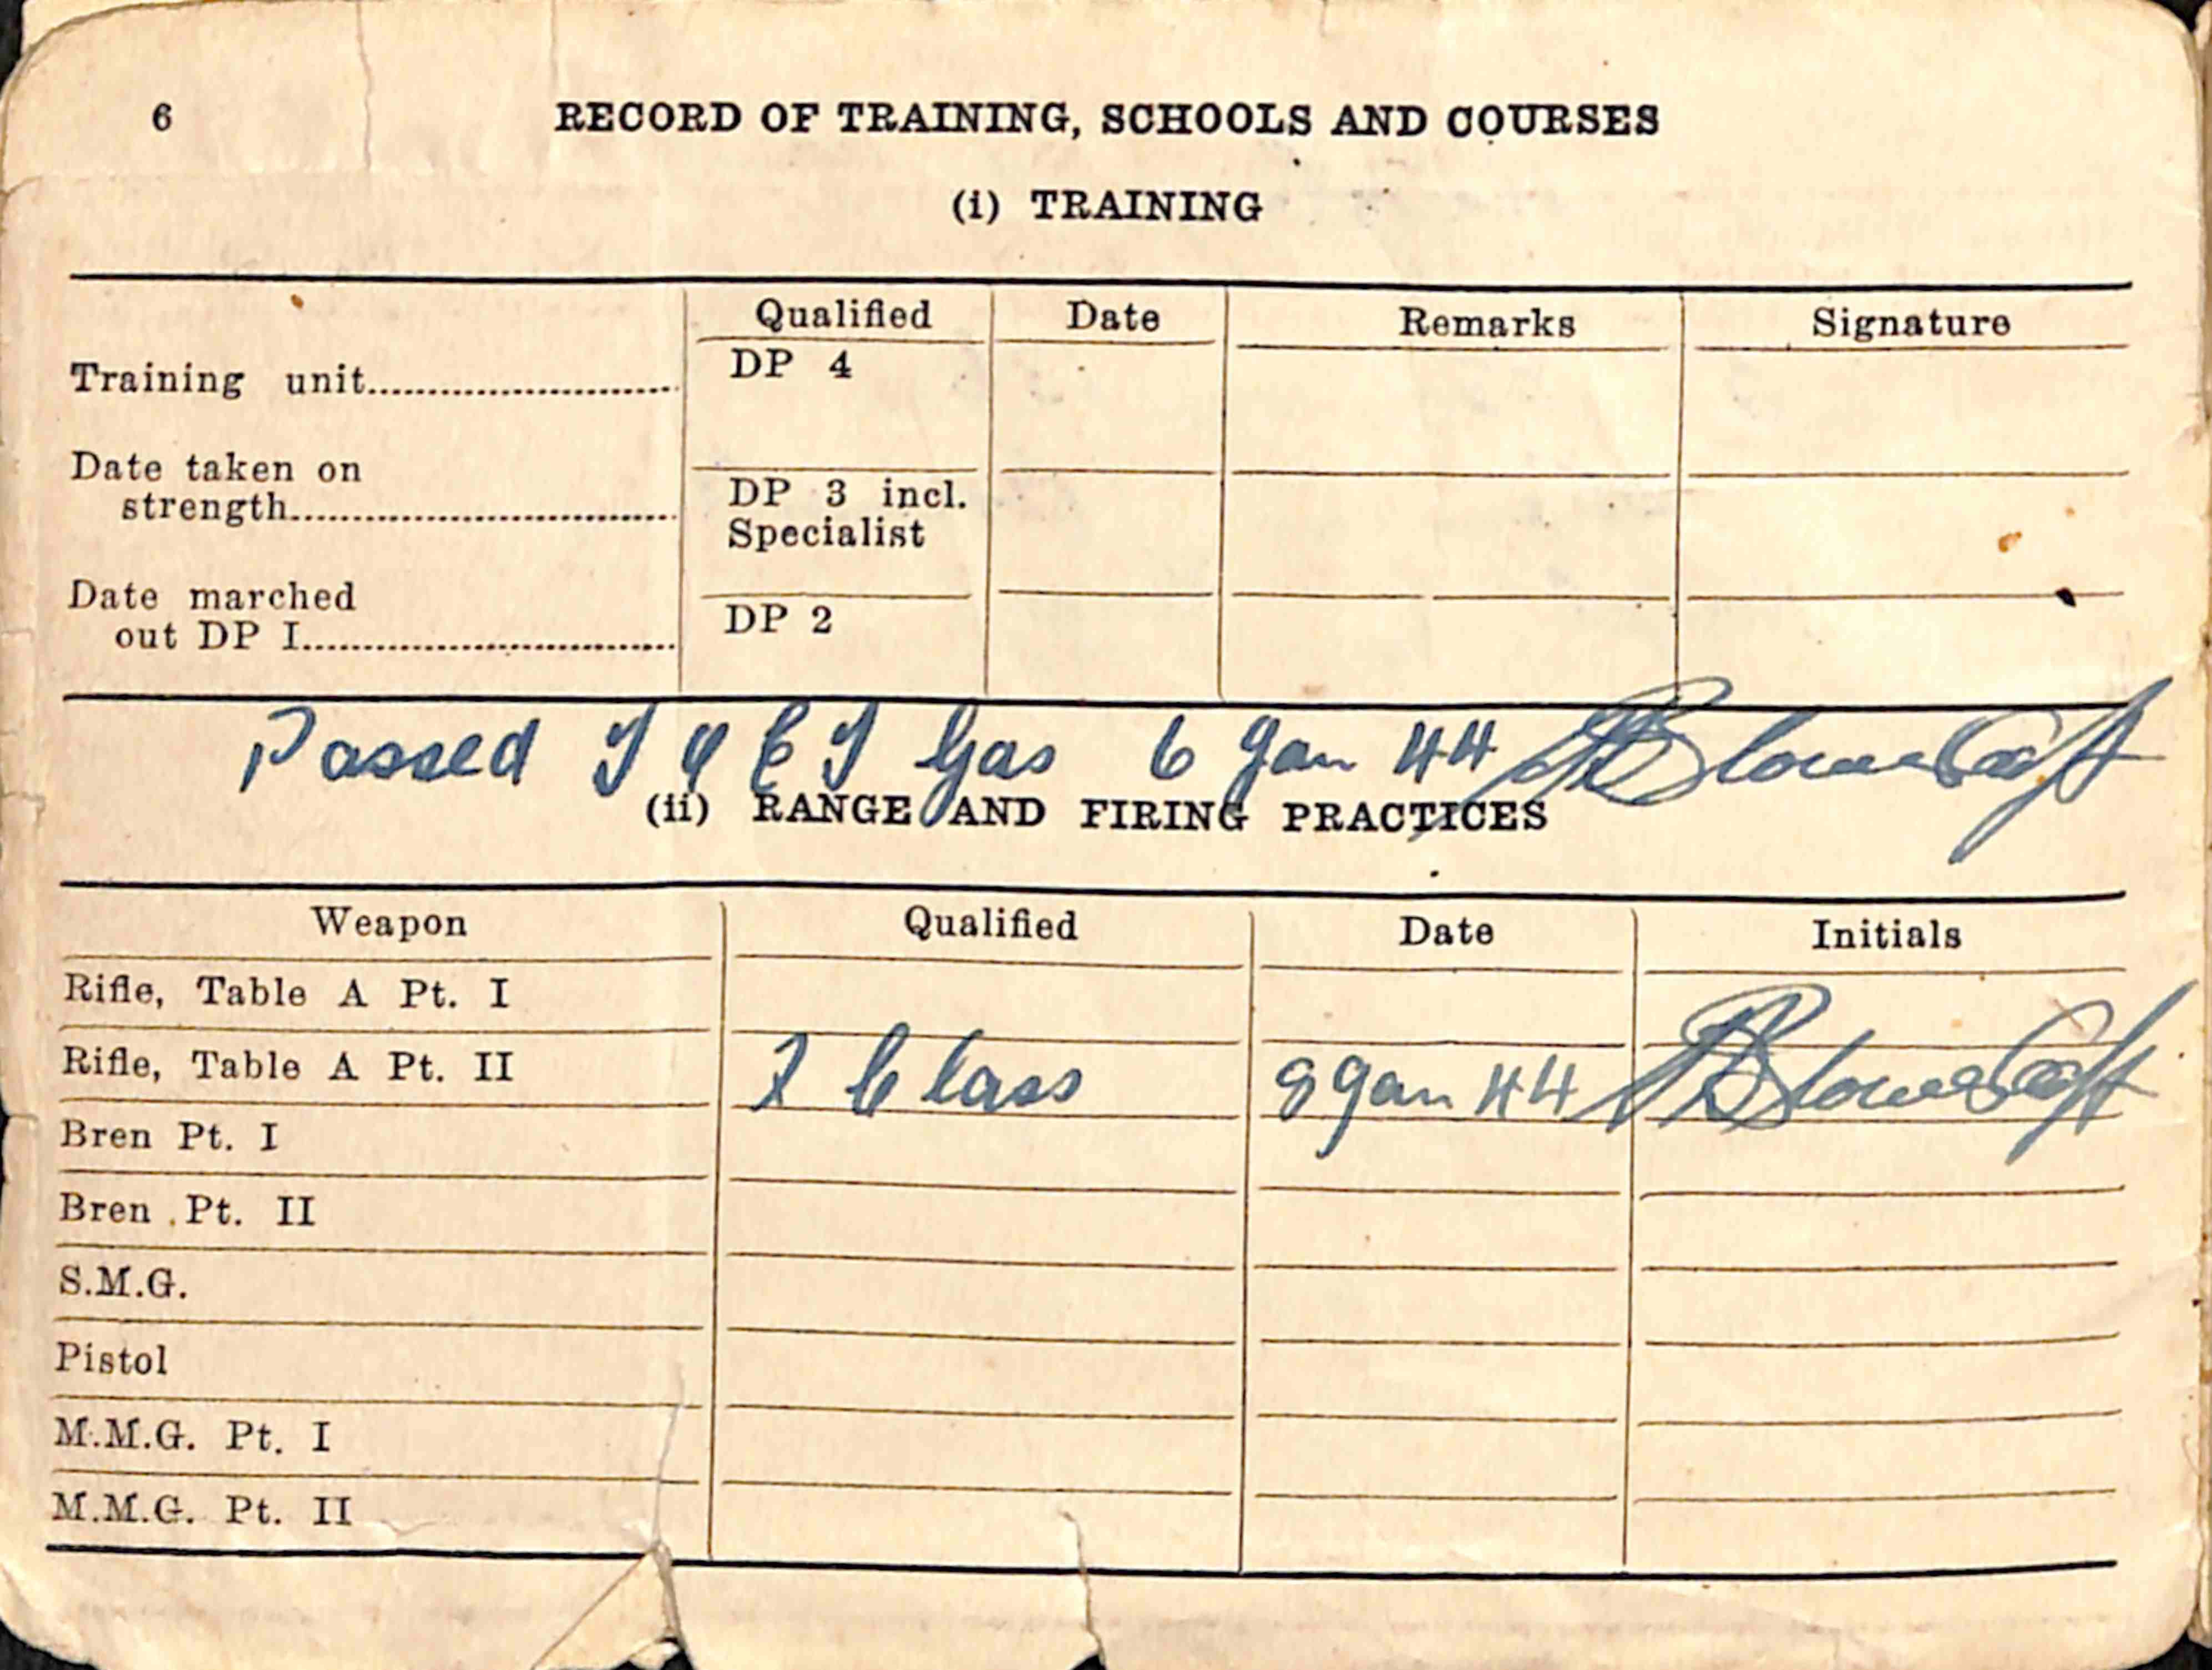 6 RECORD OF TRAINING, SCHOOLS AND COURSES
(i) TRAINING
Qualified Date Remarks Signature
Training unit........................... DP 4
Date taken on
strength................................. DP 3 incl.
Specialist
Date marched
out DP I................................ DP 2
Passed Gas 6 Jan 44
(ii) RANGE AND FIRING PRACTICES
Weapon Qualified Date Initials
Rifle, Table A Pt. I
Rifle, Table A Pt. II Class Jan 44
Bren Pt. I
Bren Pt. II
S.M.G.
Pistol
M.M.G. Pt. I
M.M.G. Pt. II